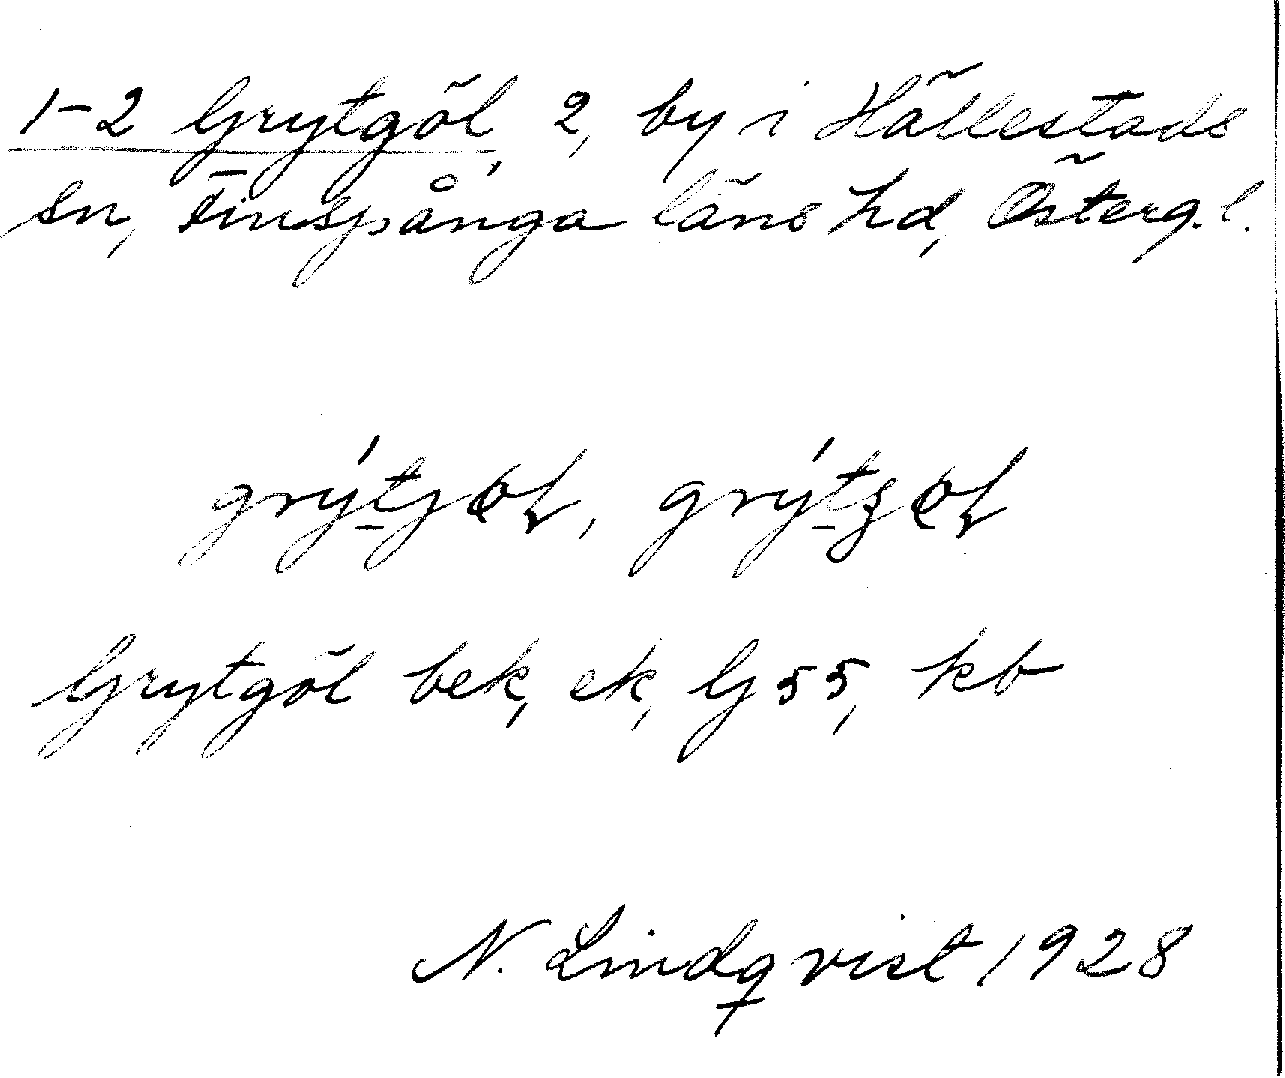 1-2 Grytgöl, 2, by i Hällestads
sn, Finspånga läns hd, Österg.l.
Grytgöl bek, ek, G 55, kb
N. Lindqvist 1928